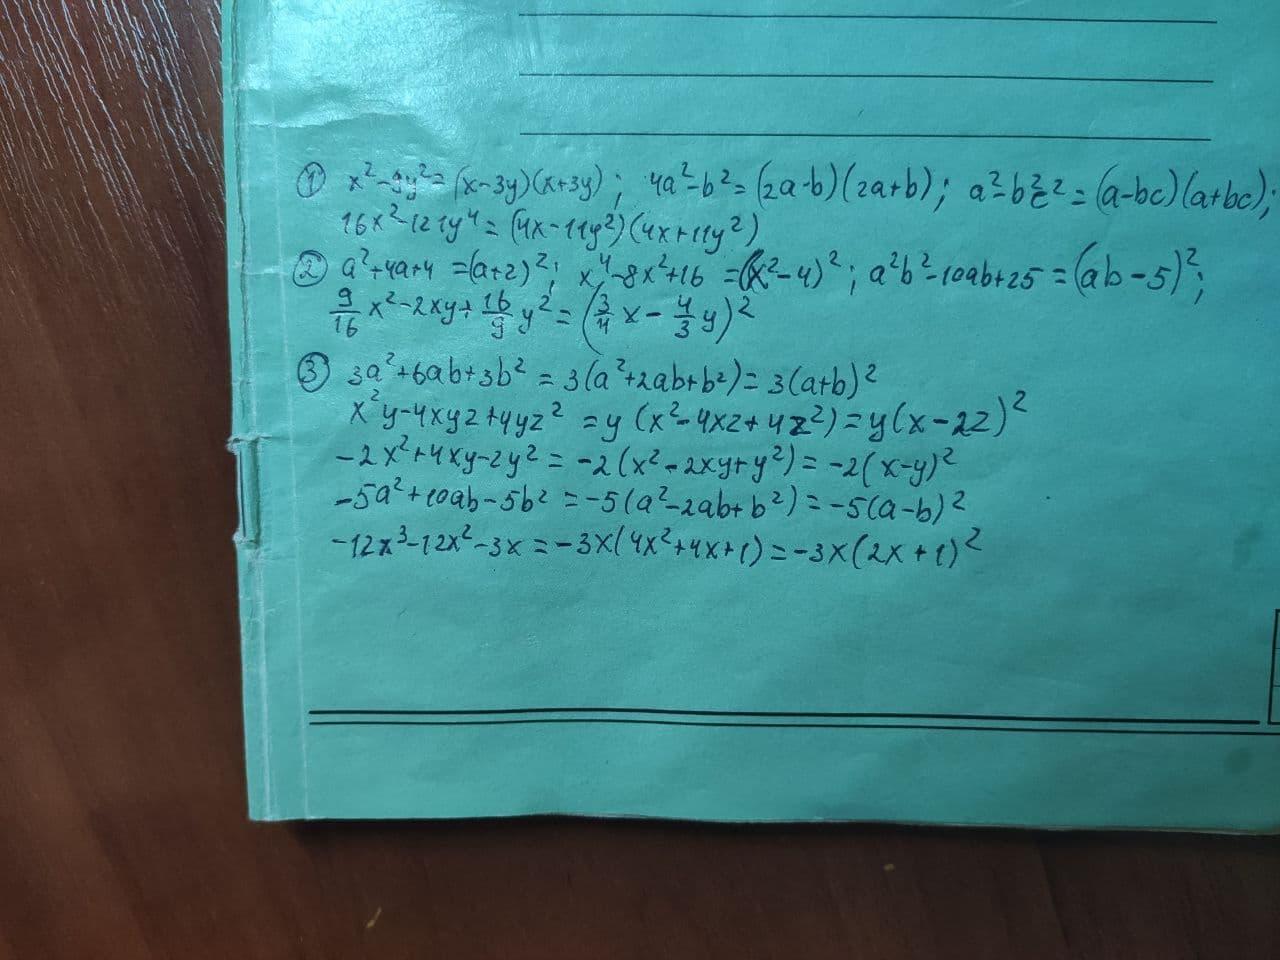 ① x²-9y²=(x-3y)(x+3y); 4a²-b²=(2a-b)(2a+b); a²-b²c²=(a-bc)(a+bc);
16x²-121y⁴=(4x-11y²)(4x+11y²)
② a²+4a+4=(a+2)²; x⁴-8x²+16=(x²-4)²; a²b²-10ab+25=(ab-5)²;
9/16 x²-2xy+16/9 y²=(3/4 x-4/3 y)²
③ 3a²+6ab+3b²=3(a²+2ab+b²)=3(a+b)²
x²y-4xyz+4yz²=y(x²-4xz+4z²)=y(x-2z)²
-2x²+4xy-2y²=-2(x²-2xy+y²)=-2(x-y)²
-5a²+10ab-5b²=-5(a²-2ab+b²)=-5(a-b)²
-12x³-12x²-3x=-3x(4x²+4x+1)=-3x(2x+1)²